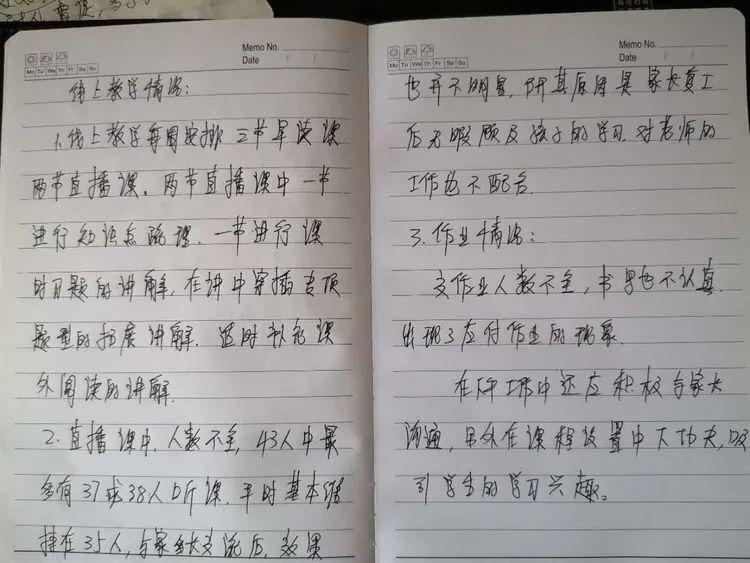 Memo No.
Date
Mo Tu We Th Fr Sa Su
线上教学情况:
1、线上教学每周安排三节早读课
两节直播课。两节直播课中一节
进行知识点梳理、一节进行课
时习题的讲解,在讲中穿插专项
题型的拓展讲解。适时补充课
外阅读的讲解.
2.直播课中,人数不全,43人中最
多有37或38人听课,平时基本维
持在35人,与家长交流后,效果
Memo No.
Date
Mo Tu We Th Fr Sa Su
也并不明显,究其原因是家长复工
后无暇顾及孩子的学习.对老师的
工作也不配合.
3.作业情况:
交作业人数不全,书写也不认真.
出现了应付作业的现象.
在工作中还应积极与家长
沟通,另外在课程设置中下功夫,吸
引学生的学习兴趣。